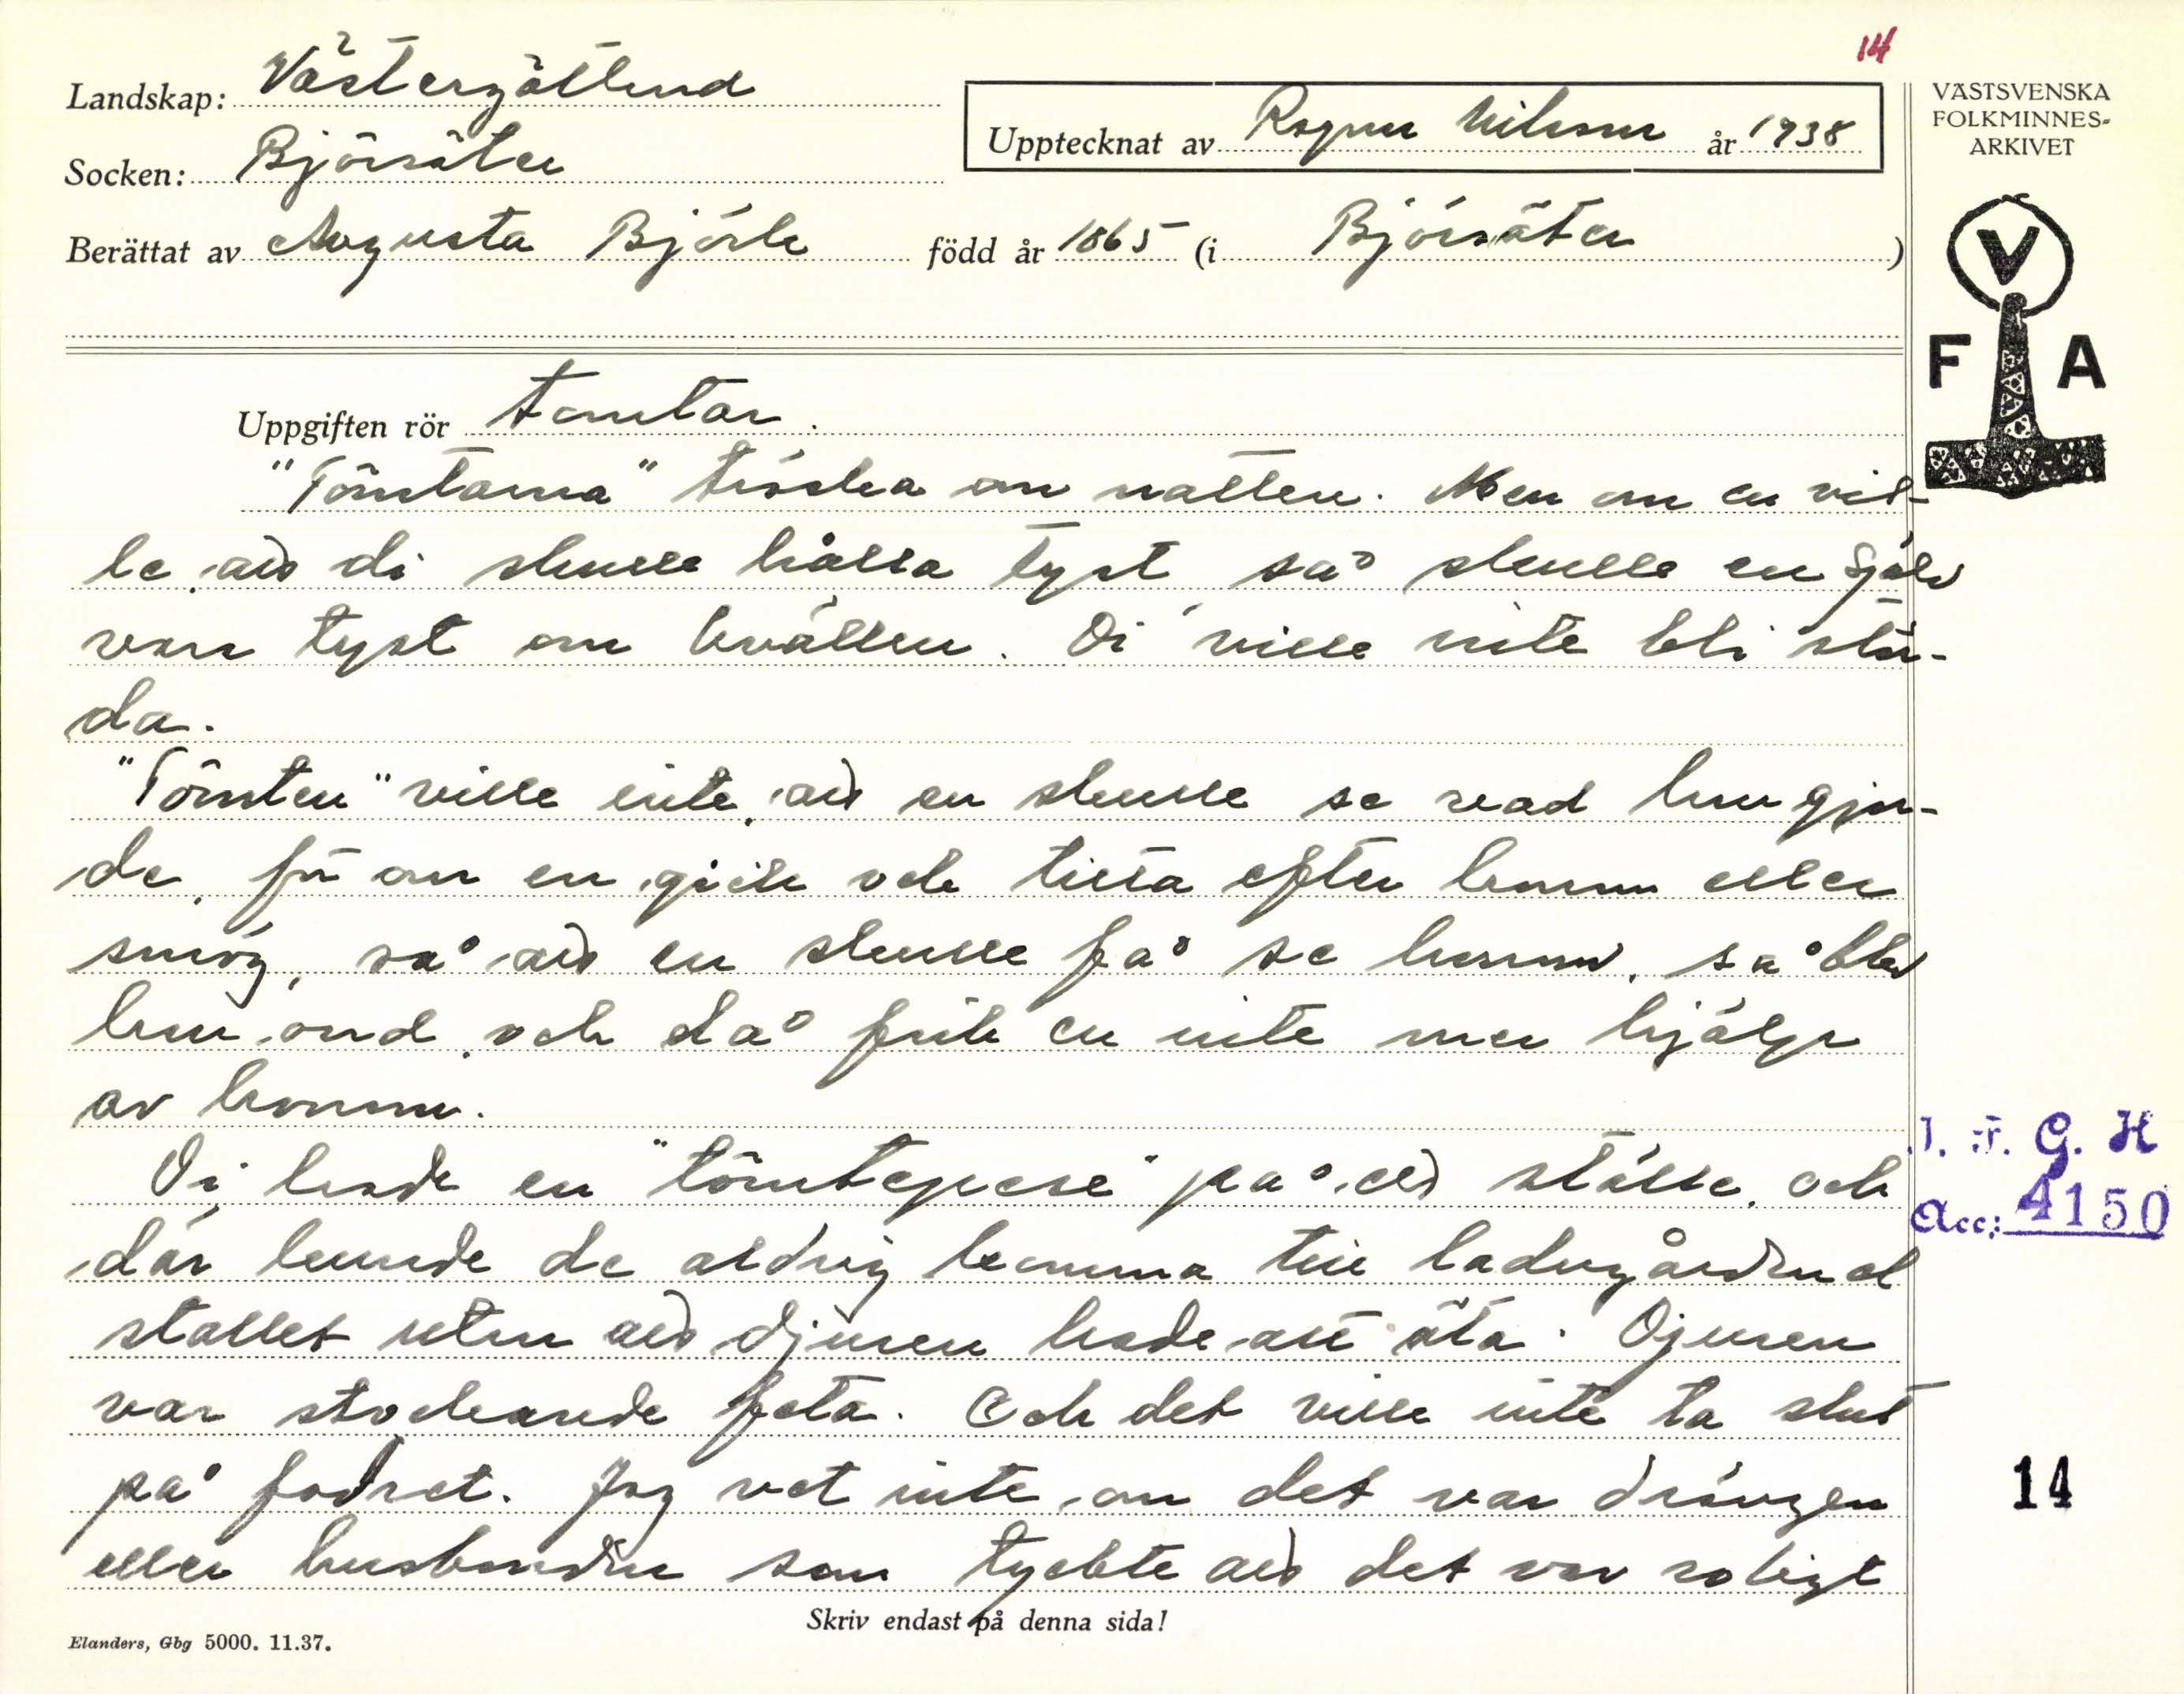 14
Landskap: Västergötland
Socken: Björsäter
Upptecknat av Ragnar Nilsson år 1938
Berättat av Augusta Björk född år 1865 (i Björsäter )
VÄSTSVENSKA
FOLKMINNES-
ARKIVET
V
F A
Uppgiften rör tomtar.
"Tômtarna" tröska om natten. Men om en vil-
le, att di skulle hålla tyst så skulle en själv
vara tyst om kvällen. Di ville inte bli stör-
da.
"Tômten" ville inte, att en skulle se vad han gjor-
de, för om en gick och titta efter honom eller
smög, så att en skulle få se honom, så blev
han ond och då fick en inte mer hjälp
av honom.
Di hade en "tômtepese" på ett ställe. Och
där kunde de aldrig komma till ladugården el
stallet utan att djuren hade att äta. Djuren
var stockande feta. Och det ville inte ta slut
på fodret. Jag vet inte, om det var drängen
eller husbonden som tyckte att det var roligt
J. F. G. H
Acc: 4150
14
Skriv endast på denna sida!
Elanders, Gbg 5000. 11.37.